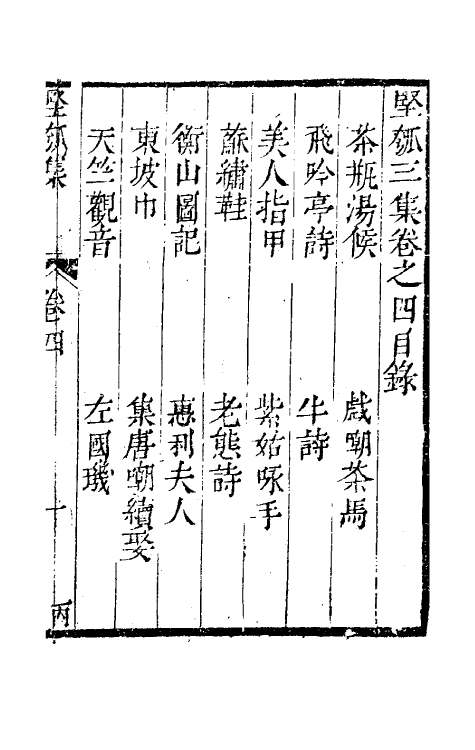 堅瓠三集卷之四目錄
茶瓶湯候　戲嘲茶馬
飛吟亭詩　牛詩
美人指甲　紫姑咏手
蘇繡鞋　老態詩
衡山圖記　惠利夫人
東坡巾　集唐嘲續娶
天竺觀音　左國璣
堅瓠集　卷四　十　丙